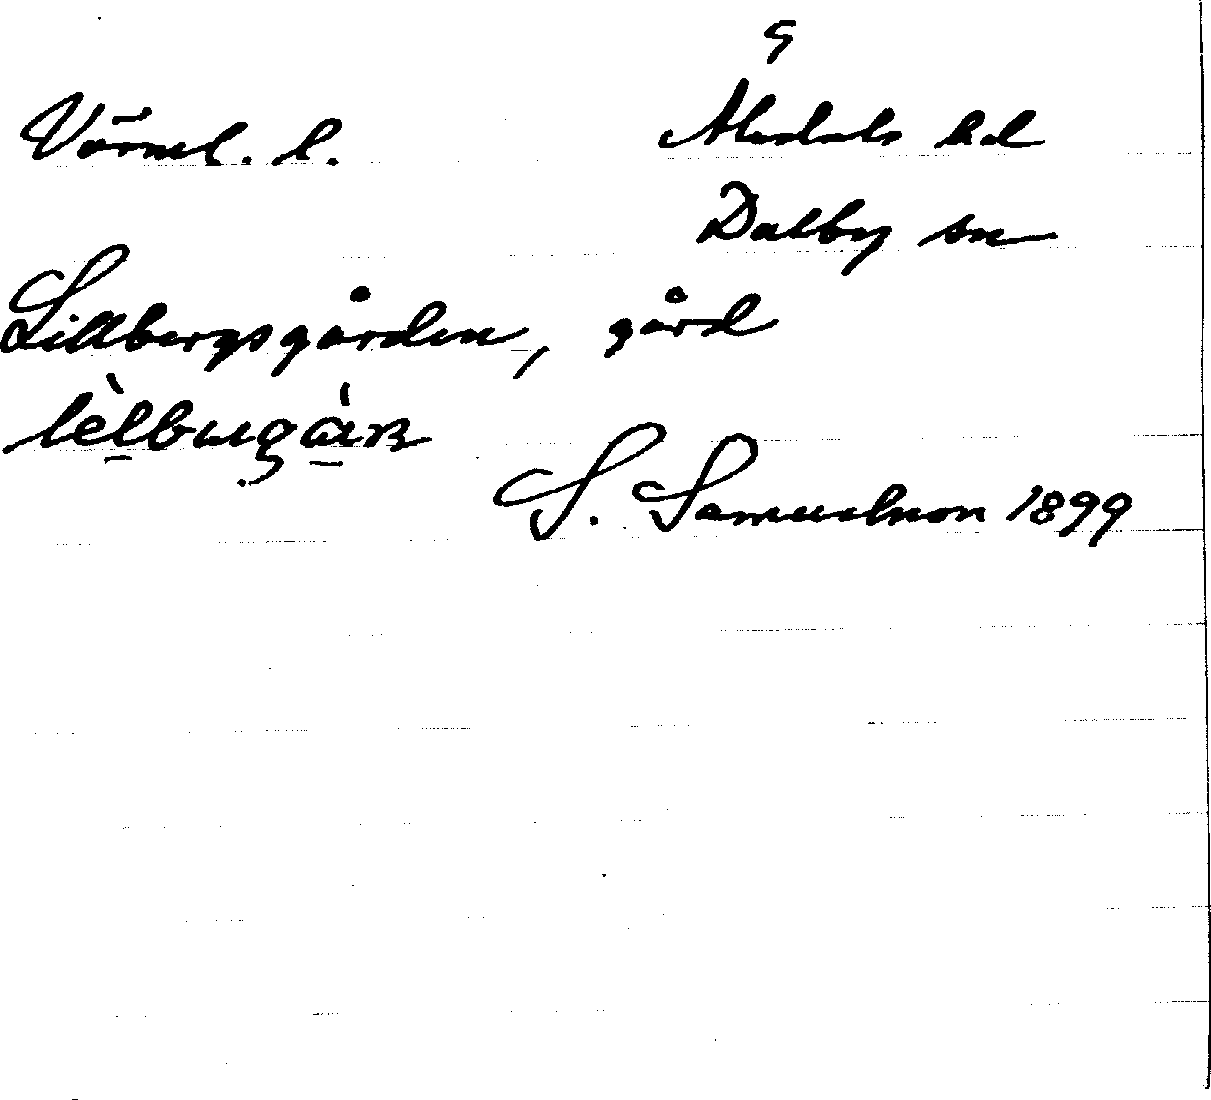 9
Värml. l.
Älvdals hd
Dalby sn
Lillbergsgården, gård
S. Samuelsson 1899